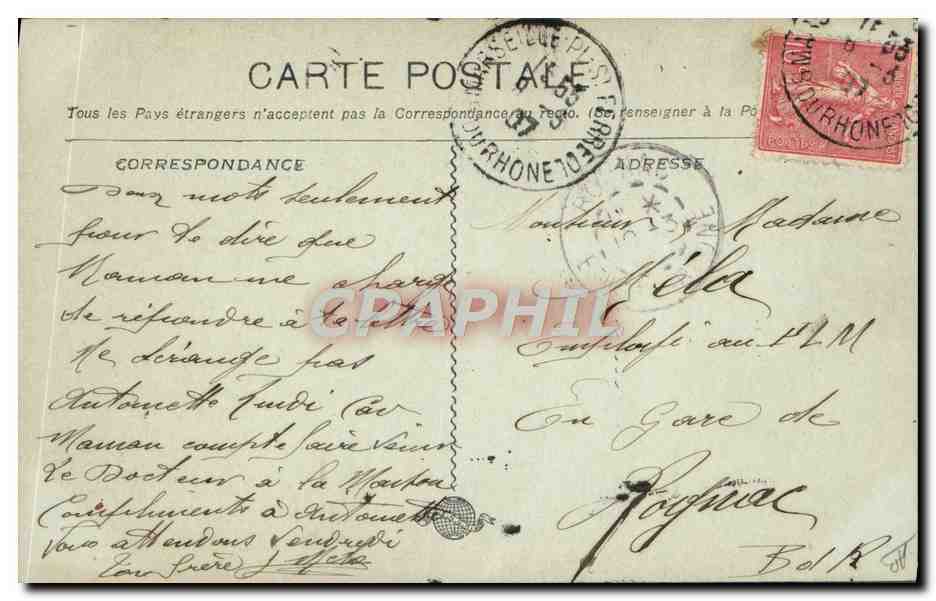 CARTE POSTALE
Tous les Pays étrangers n'acceptent pas la Correspondance au recto. (Se renseigner à la Po
CORRESPONDANCE
Deux mots seulement
pour te dire que
Maman me charge
de répondre à ta lettre
Ne dérange pas
Antoinette Lundi Car
Maman compte faire venir
Le Docteur à la Maison
Compliments à Antoinette
Vous attendons Vendredi
Ton frère
ADRESSE
Monsieur, Madame
Méla
Employé au PLM
En Gare de
Rognac
B d R
MARSEILLE Pl. St FERREOL
BOUCHES DU RHONE
CPAPHIL